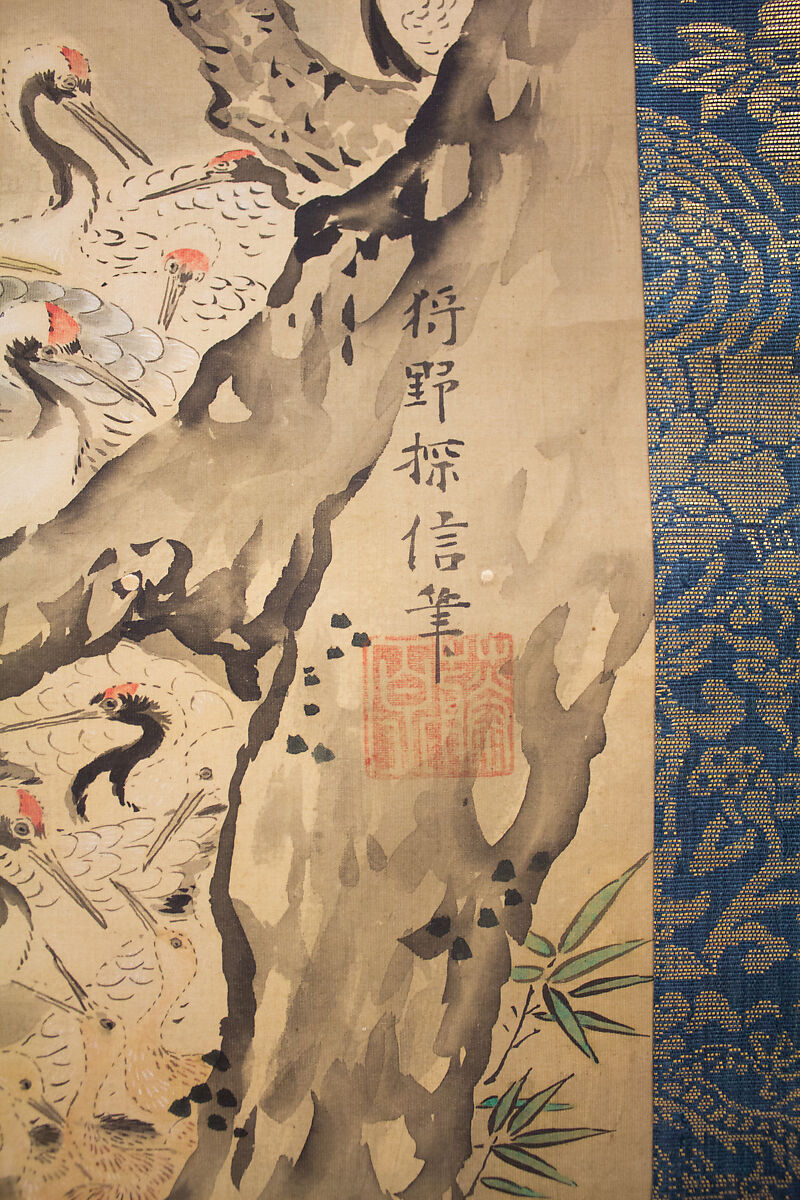 狩野探信筆